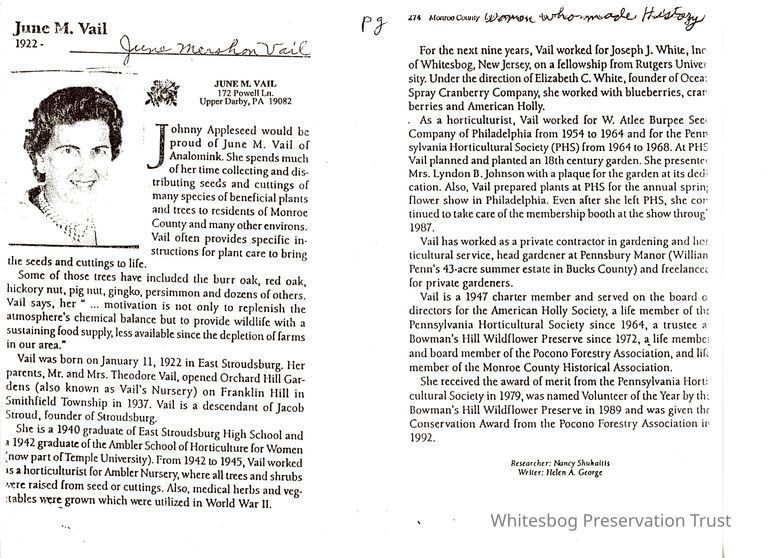 June M. Vail
1922 -
June Mershon Vail
JUNE M. VAIL
172 Powell Ln.
Upper Darby, PA 19082
Johnny Appleseed would be
proud of June M. Vail of
Analomink. She spends much
of her time collecting and dis-
tributing seeds and cuttings of
many species of beneficial plants
and trees to residents of Monroe
County and many other environs.
Vail often provides specific in-
structions for plant care to bring
the seeds and cuttings to life.
Some of those trees have included the burr oak, red oak,
hickory nut, pig nut, gingko, persimmon and dozens of others.
Vail says, her " ... motivation is not only to replenish the
atmosphere's chemical balance but to provide wildlife with a
sustaining food supply, less available since the depletion of farms
in our area."
Vail was born on January 11, 1922 in East Stroudsburg. Her
parents, Mr. and Mrs. Theodore Vail, opened Orchard Hill Gar-
dens (also known as Vail's Nursery) on Franklin Hill in
Smithfield Township in 1937. Vail is a descendant of Jacob
Stroud, founder of Stroudsburg.
She is a 1940 graduate of East Stroudsburg High School and
a 1942 graduate of the Ambler School of Horticulture for Women
(now part of Temple University). From 1942 to 1945, Vail worked
as a horticulturist for Ambler Nursery, where all trees and shrubs
were raised from seed or cuttings. Also, medical herbs and veg-
etables were grown which were utilized in World War II.
pg 274 Monroe County Women who made History
For the next nine years, Vail worked for Joseph J. White, Inc
of Whitesbog, New Jersey, on a fellowship from Rutgers Unive
sity. Under the direction of Elizabeth C. White, founder of Ocea
Spray Cranberry Company, she worked with blueberries, cran
berries and American Holly.
As a horticulturist, Vail worked for W. Atlee Burpee See
Company of Philadelphia from 1954 to 1964 and for the Penn
sylvania Horticultural Society (PHS) from 1964 to 1968. At PHS
Vail planned and planted an 18th century garden. She presente
Mrs. Lyndon B. Johnson with a plaque for the garden at its dedi
cation. Also, Vail prepared plants at PHS for the annual spring
flower show in Philadelphia. Even after she left PHS, she con
tinued to take care of the membership booth at the show throug
1987.
Vail has worked as a private contractor in gardening and hor
ticultural service, head gardener at Pennsbury Manor (William
Penn's 43-acre summer estate in Bucks County) and freelanced
for private gardeners.
Vail is a 1947 charter member and served on the board o
directors for the American Holly Society, a life member of the
Pennsylvania Horticultural Society since 1964, a trustee a
Bowman's Hill Wildflower Preserve since 1972, a life member
and board member of the Pocono Forestry Association, and life
member of the Monroe County Historical Association.
She received the award of merit from the Pennsylvania Horti
cultural Society in 1979, was named Volunteer of the Year by the
Bowman's Hill Wildflower Preserve in 1989 and was given the
Conservation Award from the Pocono Forestry Association in
1992.
Researcher: Nancy Shukaitis
Writer: Helen A. George
Whitesbog Preservation Trust